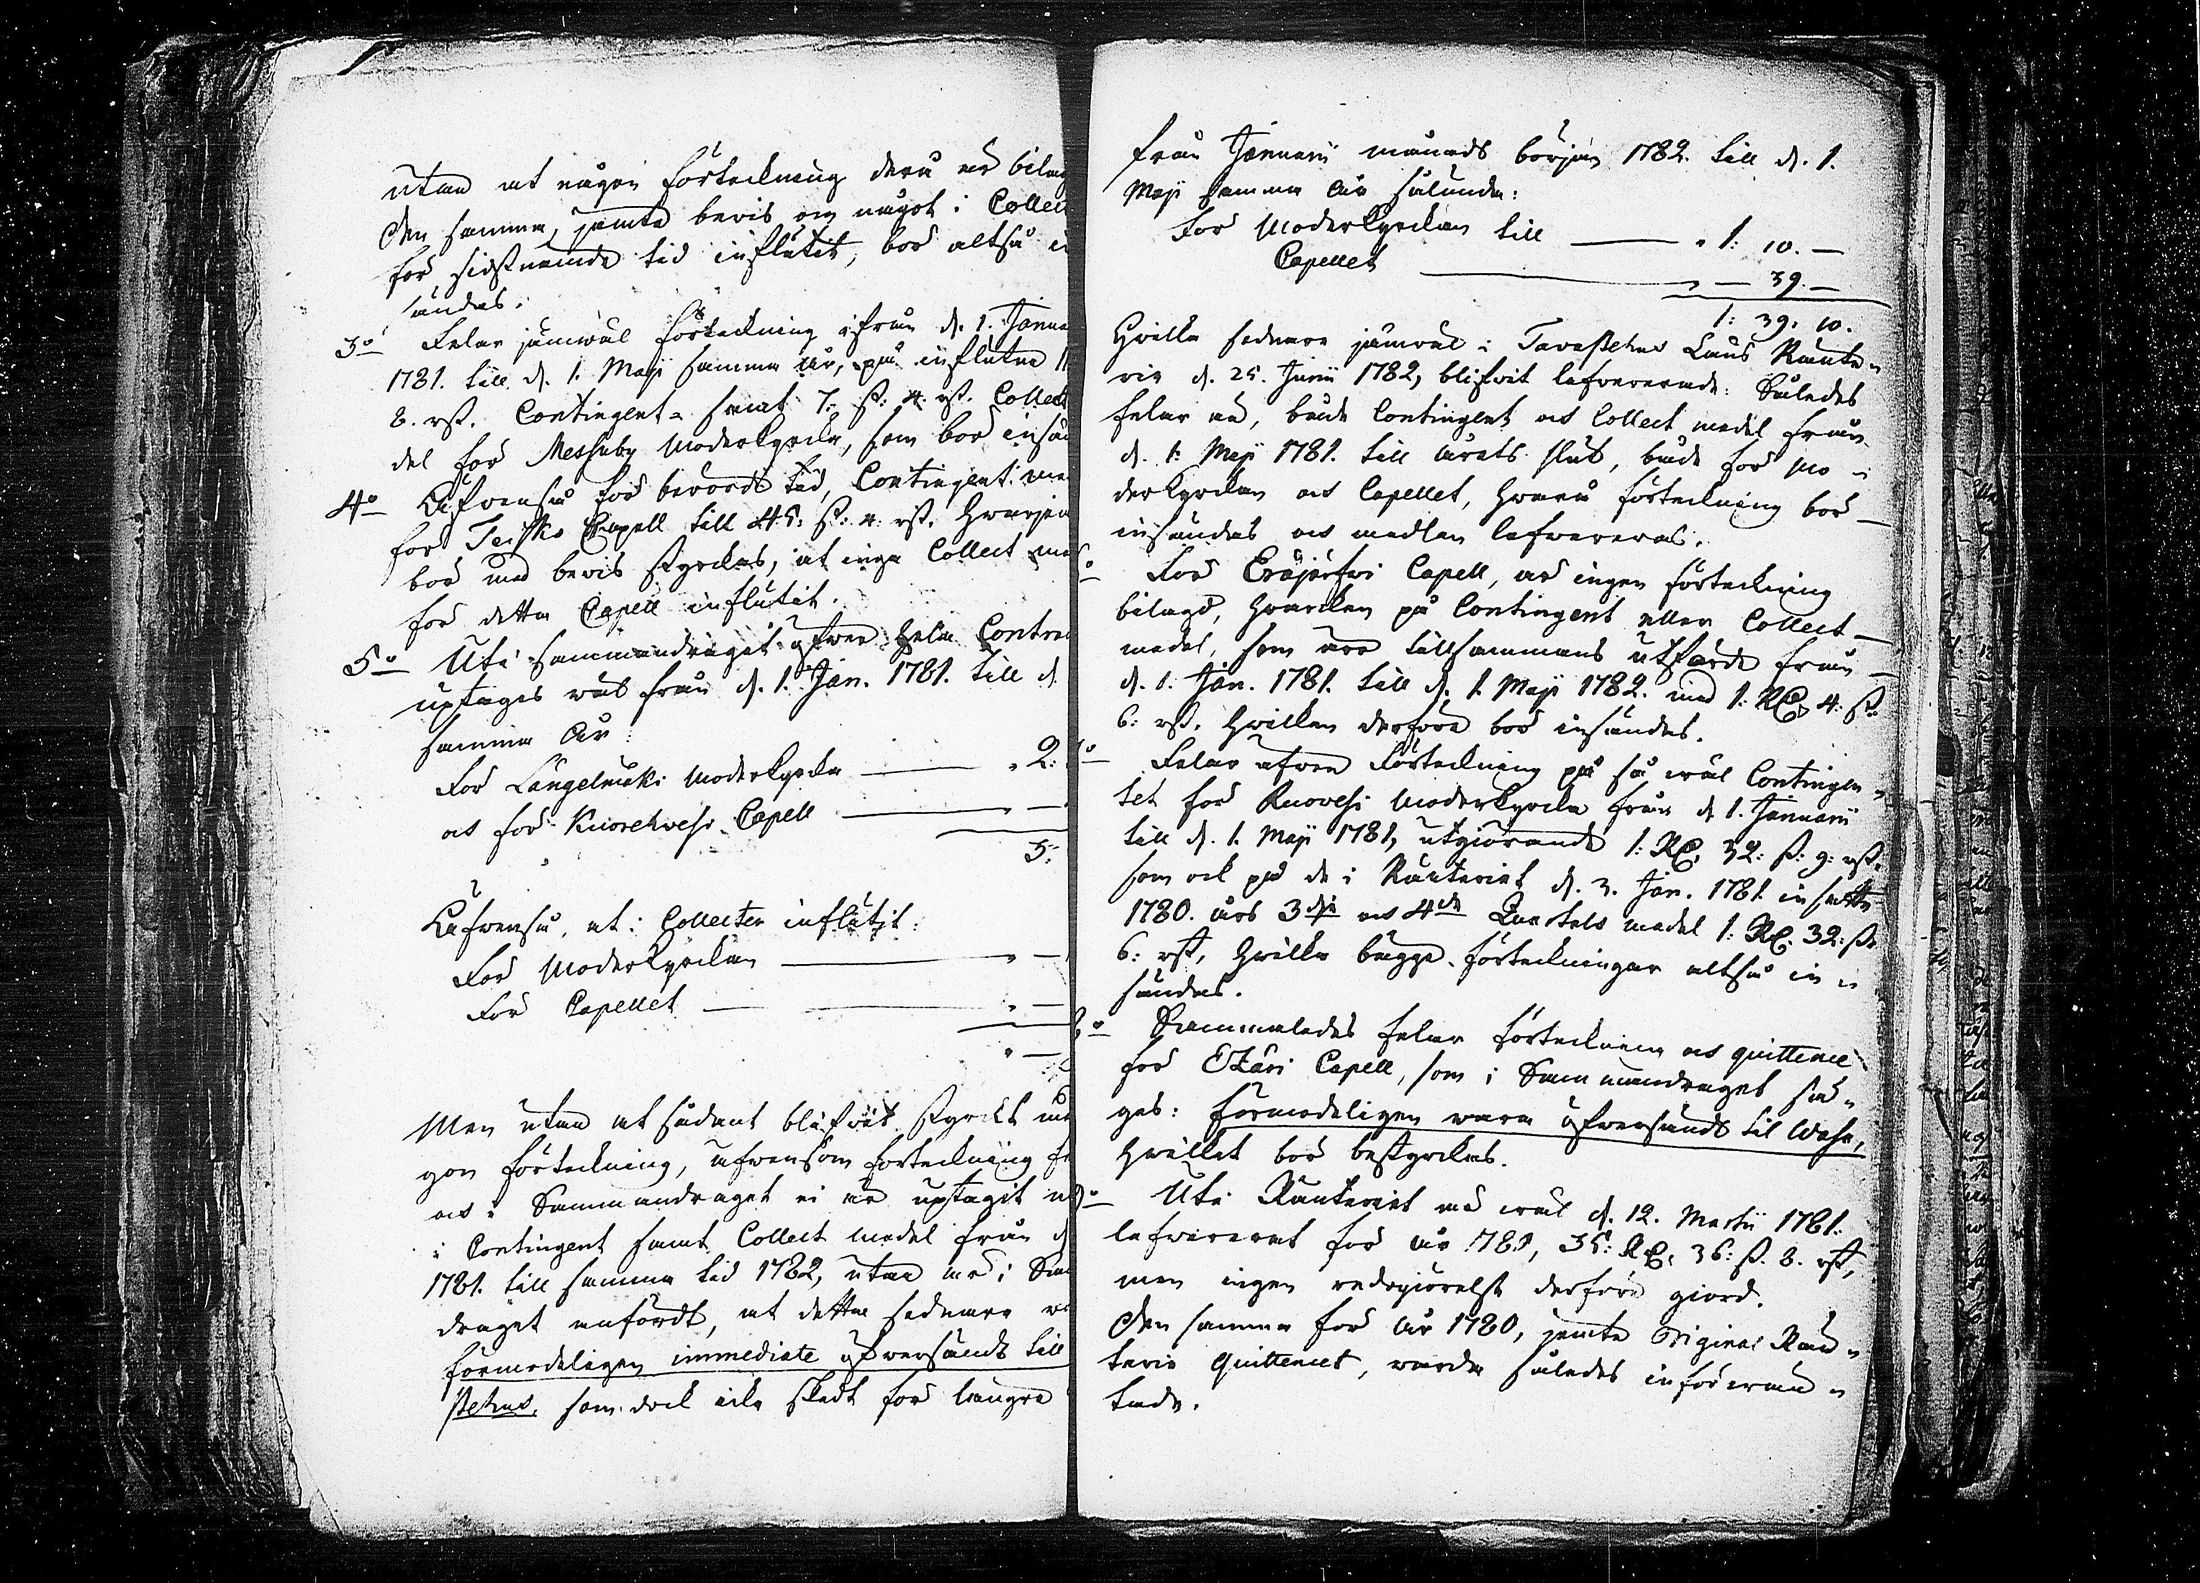 utan at någon förteckning derå är bilag
Den samma, jemte bevis om något i Collec
för sidstnämde tid influtit, bör altså i
sändas.
3o Felar jämwäl förteckning ifrån d. 1. Janua
1781. till d. 1. Maji samma år, på influtne
8. rst. Contingent- samt 7. ß. 4. rst. Collect
del för Messuby Moderkyrka, som bör insä
4o Äfvenså för berörde tid, Contingent. me
för Teisko Capell till 45. ß. 4. rst. Hwarjem
bör med bevis styrckas, at inga Collect me
för detta Capell influtit.
5o Uti sammandraget öfwer hela Contra
uptages wäl från d. 1. Jan. 1781. till d
samma År
För Längelmäki Moderkyrka 2:
och för Kuorehvesi Capell —
3:
Äfvenså, at i Collecter influtit:
För Moderkyrkan —
För Capellet —
Men utan at sådant blifwit styrckt me
gon förteckning, äfvensom förteckning f
och i Sammandraget ei är uptagit
i Contingent samt Collect medel från d
1781. till samma tid 1782, utan är i Sam
draget anfördt, at detta sednare
förmodeligen immediate öfwersändt till
stehus, som dock icke skedt för längre
från Januarii månads början 1782. till d. 1.
Maji samma år sålunda:
För Moderkyrkan till — 1: 10. —
Capellet — 39. —
1: 39. 10.
Hvilka sednare jämväl i Tavastehus Läns Ränte-
rie d. 25. Junii 1782, blifvit lefvererade. Således
felar än, både Contingent och Collect medel från
d. 1. Maji 1781. till årets slut, både för Mo-
derkyrkan och Capellet, hvarå förteckning bör
insändas och medlen lefvereras.
o För Eräjärfvi Capell, är ingen förteckning
bilagd, hvarcken på Contingent eller Collect-
medel, som äro tillsammans utförde från
d. 1. Jan. 1781. till d. 1. Maji 1782. med 1. Rd. 4. ß.
6. rst. hvilken derföre bör insändas.
o Felar äfven förteckning på så wäl Contingen-
tet för Ruovesi Moderkyrka från d. 1. Januarii
till d. 1. Maji 1781, utgiörande 1. Rd. 32. ß. 9. rst.
som ock på de i Ränteriet d. 3. Jan. 1781. insatte
1780. års 3dje och 4de Quartals medel 1. Rd. 32. ß.
6. rst, hvilka bägge förteckningar altså in-
sändas.
o Sammaledes felar förteckning och quittence
för Etzäri Capell, som i Sammandraget säd-
ges: förmodeligen wara öfwersändt til Wasa,
hvilket bör bestyrckas.
o Uti Ränteriet är wäl d. 12. Martii 1781.
lefvererat för år 1781, 35. Rd. 36. ß. 8. rst,
men ingen redogiörelse derföre giord.
Den samma för år 1780, jemte Original Rän-
terie Quittencet, warda således införwän-
tade.